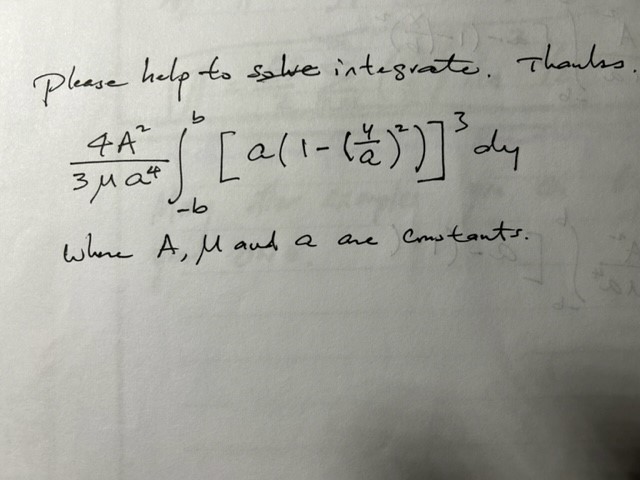 Please help to solve integrate. Thanks.
4A²/3μa⁴ ∫_{-b}^{b} [a(1-(y/a)²)]³ dy
where A, μ and a are constants.